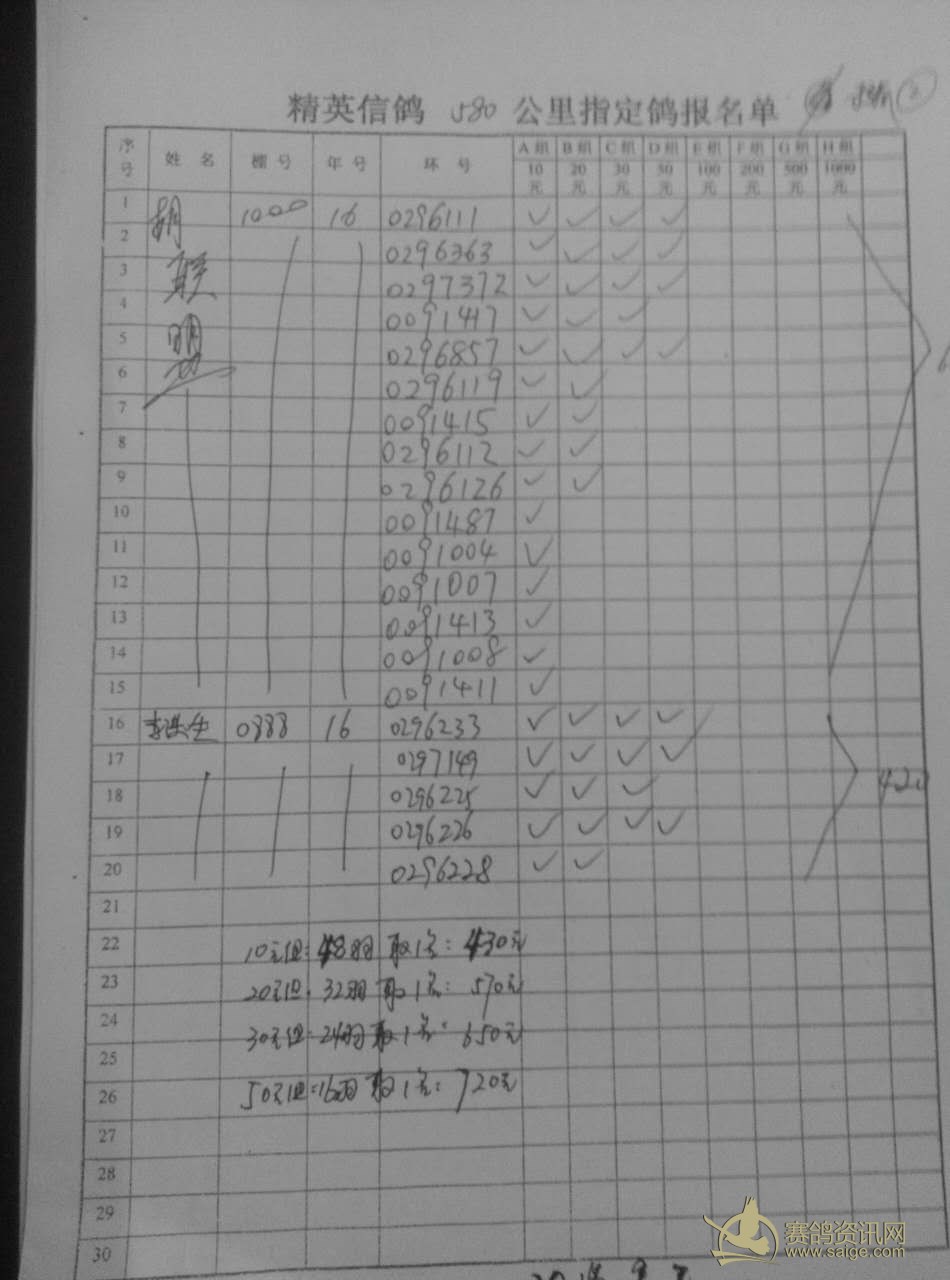 精英信鸽 580 公里指定鸽报名单 ②
序号 姓 名 棚 号 年 号 环 号 A组10元 B组20元 C组30元 D组50元 E组100元 F组200元 G组500元 H组1000元
1 胡 1000 16 0296111 ✓ ✓ ✓ ✓
2 0296363 ✓ ✓ ✓ ✓
3 联 0297372 ✓ ✓ ✓ ✓
4 0091417 ✓ ✓ ✓
5 明 0296857 ✓ ✓ ✓ ✓
6 0296119 ✓ ✓
7 0091415 ✓ ✓
8 0296112 ✓ ✓
9 0296126 ✓ ✓
10 0091487 ✓
11 0091004 ✓
12 0091007 ✓
13 0091413 ✓
14 0091008 ✓
15 0091411 ✓
16 李洪生 0888 16 0296233 ✓ ✓ ✓ ✓
17 0297149 ✓ ✓ ✓ ✓
18 0296225 ✓ ✓ ✓ 420
19 0296226 ✓ ✓ ✓ ✓
20 0296228 ✓ ✓
21
22 10元组:48羽 取1名:430元
23 20元组:32羽 取1名:570元
24 30元组:24羽 取1名:650元
25
26 50元组:16羽 取1名:720元
27
28
29
30
赛鸽资讯网
www.saige.com